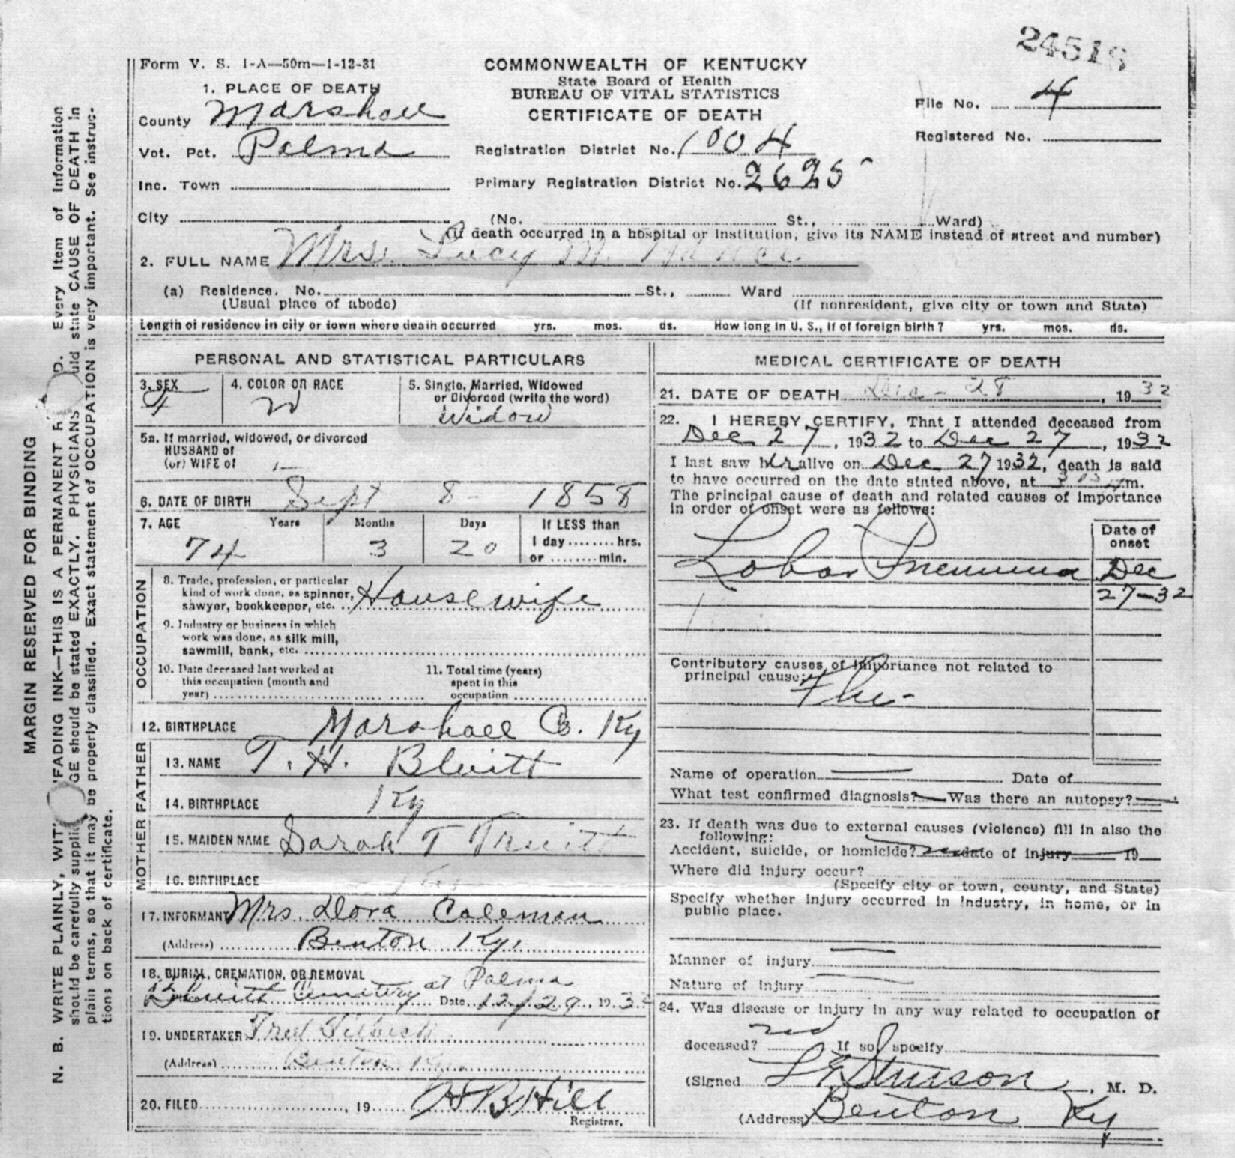 24518
Form V. S. 1-A—50m—1-12-31
COMMONWEALTH OF KENTUCKY
State Board of Health
BUREAU OF VITAL STATISTICS
CERTIFICATE OF DEATH
File No. 4
Registered No.
1. PLACE OF DEATH
County Marshall
Vot. Pct. Palma
Registration District No. 1004
Inc. Town
Primary Registration District No. 2625
City (No. St., Ward)
(If death occurred in a hospital or institution, give its NAME instead of street and number)
2. FULL NAME Mrs. Lucy M.
(a) Residence. No. St., Ward
(Usual place of abode) (If nonresident, give city or town and State)
Length of residence in city or town where death occurred yrs. mos. ds. How long in U. S., if of foreign birth? yrs. mos. ds.
PERSONAL AND STATISTICAL PARTICULARS
3. SEX 4. COLOR OR RACE 5. Single, Married, Widowed
or Divorced (write the word)
f W Widow
5a. If married, widowed, or divorced
HUSBAND of
(or) WIFE of
6. DATE OF BIRTH Sept 8 - 1858
7. AGE Years Months Days If LESS than
1 day ........ hrs.
74 3 20 or ........ min.
OCCUPATION
8. Trade, profession, or particular
kind of work done, as spinner,
sawyer, bookkeeper, etc. Housewife
9. Industry or business in which
work was done, as silk mill,
sawmill, bank, etc.
10. Date deceased last worked at
this occupation (month and
year)
11. Total time (years)
spent in this
occupation
12. BIRTHPLACE Marshall Co. Ky
FATHER
13. NAME T. H. Bluitt
14. BIRTHPLACE Ky
MOTHER
15. MAIDEN NAME Sarah T Truitt
16. BIRTHPLACE Ky
17. INFORMANT Mrs Dora Coleman
(Address) Benton Ky.
18. BURIAL, CREMATION, OR REMOVAL
at Palma
Cemetery Date 12/29 1932
19. UNDERTAKER Fred Filbeck
(Address) Benton Ky.
20. FILED , 19 H B Hill
Registrar.
MEDICAL CERTIFICATE OF DEATH
21. DATE OF DEATH Dec - 28 , 1932
22. I HEREBY CERTIFY, That I attended deceased from
Dec 27, 1932 to Dec 27, 1932
I last saw her alive on Dec 27 1932, death is said
to have occurred on the date stated above, at m.
The principal cause of death and related causes of importance
in order of onset were as follows:
Date of
onset
Lobar Pneumonia Dec
27-32
Contributory causes of importance not related to
principal cause:
Flu -
Name of operation Date of
What test confirmed diagnosis? Was there an autopsy?
23. If death was due to external causes (violence) fill in also the
following:
Accident, suicide, or homicide? date of injury 19
Where did injury occur?
(Specify city or town, county, and State)
Specify whether injury occurred in industry, in home, or in
public place.
Manner of injury
Nature of injury
24. Was disease or injury in any way related to occupation of
deceased? no If so, specify
(Signed L E Stinson, M. D.
(Address) Benton Ky
MARGIN RESERVED FOR BINDING
N. B. WRITE PLAINLY, WITH UNFADING INK—THIS IS A PERMANENT RECORD. Every item of information
should be carefully supplied. AGE should be stated EXACTLY. PHYSICIANS should state CAUSE OF DEATH in
plain terms, so that it may be properly classified. Exact statement of OCCUPATION is very important. See instruc-
tions on back of certificate.